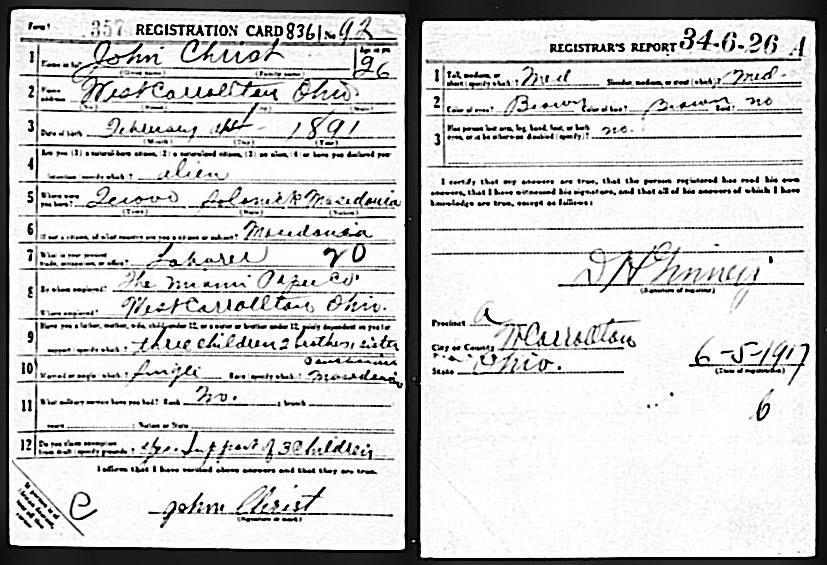 Form 1 357 REGISTRATION CARD 8361 No 92
1 John Christ 26
Name in full (Given name) (Family name) Age in yrs
2 West Carrollton Ohio
3 Date of birth February 1891
(Month) (Day) (Year)
4 Are you (1) a natural-born citizen, (2) a naturalized citizen, (3) an alien, (4) or have you declared your
intention (specify which)? alien
5 Where were you born? Macedonia
(Town) (State) (Nation)
6 If not a citizen, of what country are you a citizen or subject? Macedonia
7 What is your present trade, occupation, or office? Laborer 20
8 By whom employed? The Miami Paper Co.
Where employed? West Carrollton Ohio.
9 Have you a father, mother, wife, child under 12, or a sister or brother under 12, solely dependent on you for
support (specify which)? three children 2 brothers sister
10 Married or single (which)? Single Race (specify which)? Caucasian Macedonia
11 What military service have you had? Rank No. ; branch
years ; Nation or State
12 Do you claim exemption from draft (specify grounds)? Yes. Support of 3 Children
I affirm that I have verified above answers and that they are true.
C John Christ
(Signature or mark)
REGISTRAR'S REPORT 34-6-26 A
1 Tall, medium, or short (specify which)? Med Slender, medium, or stout (which)? Med.
2 Color of eyes? Brown Color of hair? Brown Bald? no
3 Has person lost arm, leg, hand, foot, or both eyes, or is he otherwise disabled (specify)? no.
I certify that my answers are true, that the person registered has read his own
answers, that I have witnessed his signature, and that all of his answers of which I have
knowledge are true, except as follows:
(Signature of registrar)
Precinct A
City or County W Carrollton
State Ohio. 6-5-1917
(Date of registration)
6